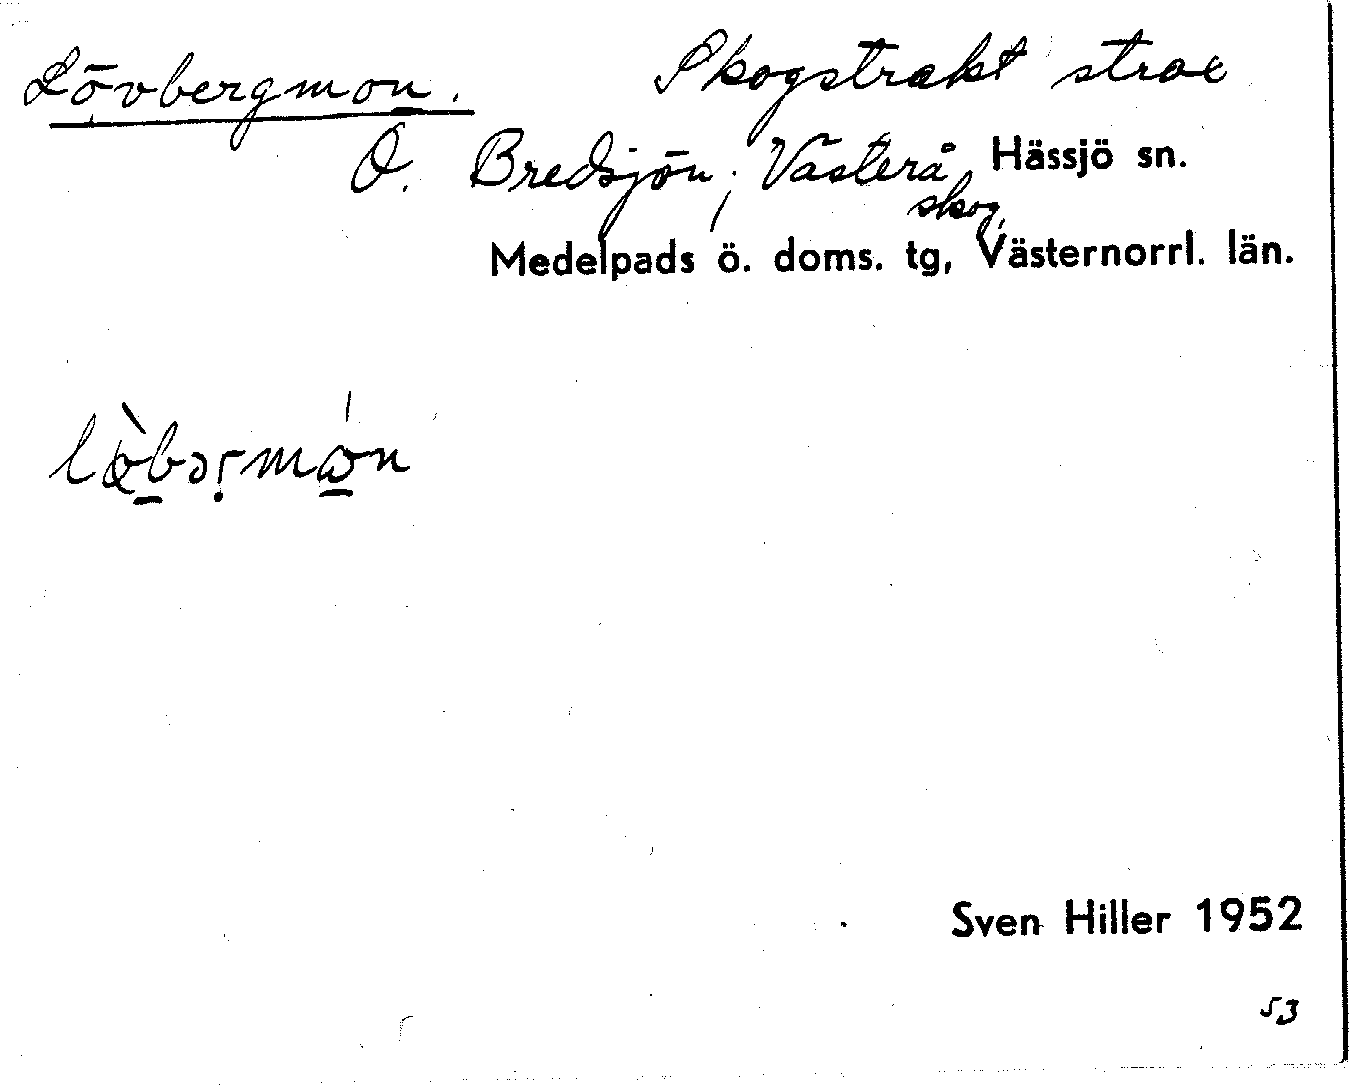 Lövbergmon. Skogstrakt strax
Ö. Bredsjön; Västerå Hässjö sn.
skog,
Medelpads ö. doms. tg, Västernorrl. län.
Sven Hiller 1952
53